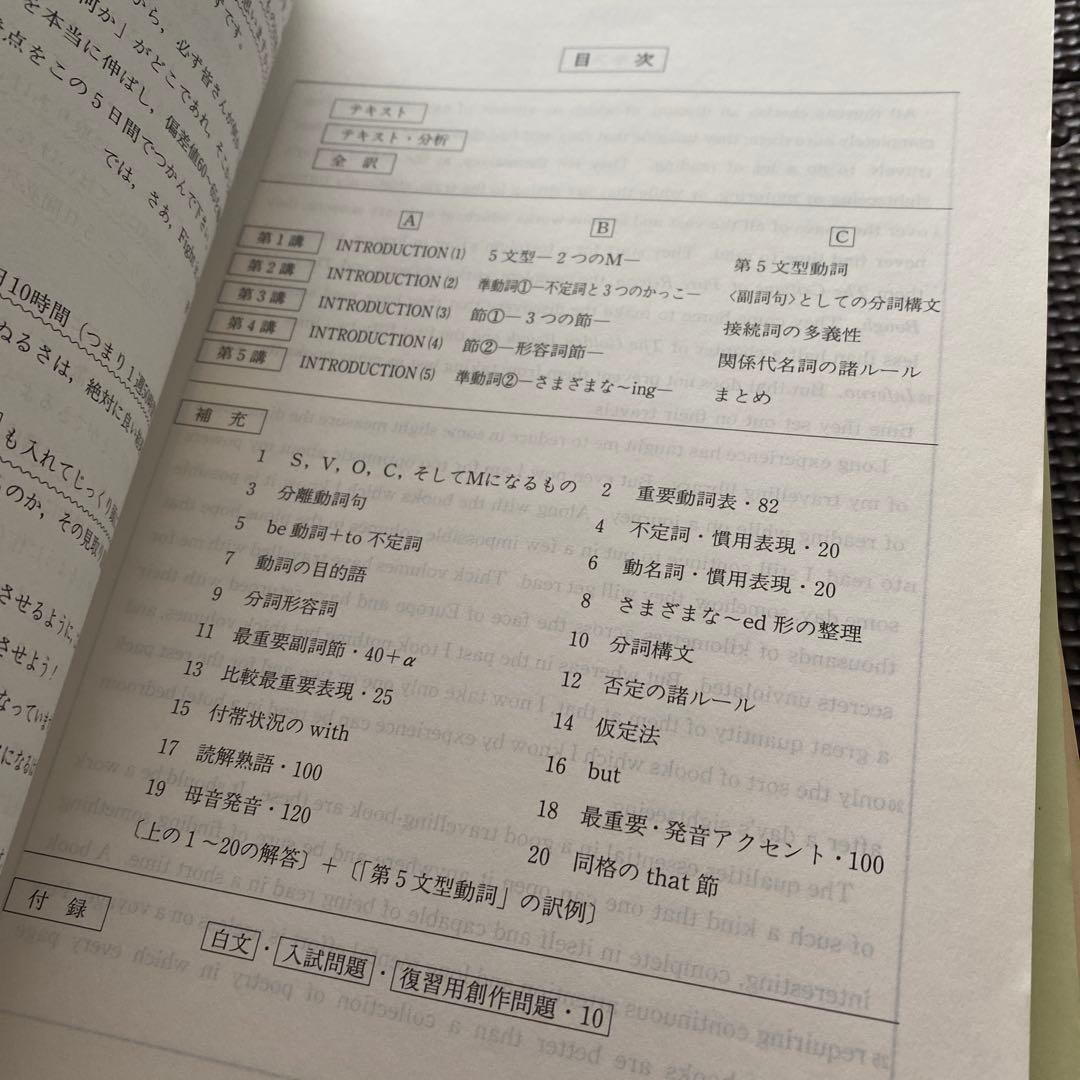 目次
テキスト
テキスト・分析
全訳
A B C
第1講 INTRODUCTION(1) 5文型―2つのM― 第5文型動詞
第2講 INTRODUCTION(2) 準動詞①―不定詞と3つのかっこ― 〈副詞句〉としての分詞構文
第3講 INTRODUCTION(3) 節①―3つの節― 接続詞の多義性
第4講 INTRODUCTION(4) 節②―形容詞節― 関係代名詞の諸ルール
第5講 INTRODUCTION(5) 準動詞②―さまざまな~ing― まとめ
補充
1 S, V, O, C, そしてMになるもの 2 重要動詞表・82
3 分離動詞句 4 不定詞・慣用表現・20
5 be動詞+to不定詞 6 動名詞・慣用表現・20
7 動詞の目的語 8 さまざまな~ed形の整理
9 分詞形容詞 10 分詞構文
11 最重要副詞節・40+α 12 否定の諸ルール
13 比較最重要表現・25 14 仮定法
15 付帯状況のwith 16 but
17 読解熟語・100 18 最重要・発音アクセント・100
19 母音発音・120 20 同格のthat節
〔上の1~20の解答〕+〔「第5文型動詞」の訳例〕
付録
白文・入試問題・復習用創作問題・10
から, 必ず皆さんが
何か」がどこであれ, そこ
を本当に伸ばし, 偏差値60~65
点をこの5日間でつかんで下さい
では, さあ, Fight
10時間(つまり1週
ねるさは, 絶対に良い
も入れてじっくり
のか, その見取り
させるように,
させよう!
なっています